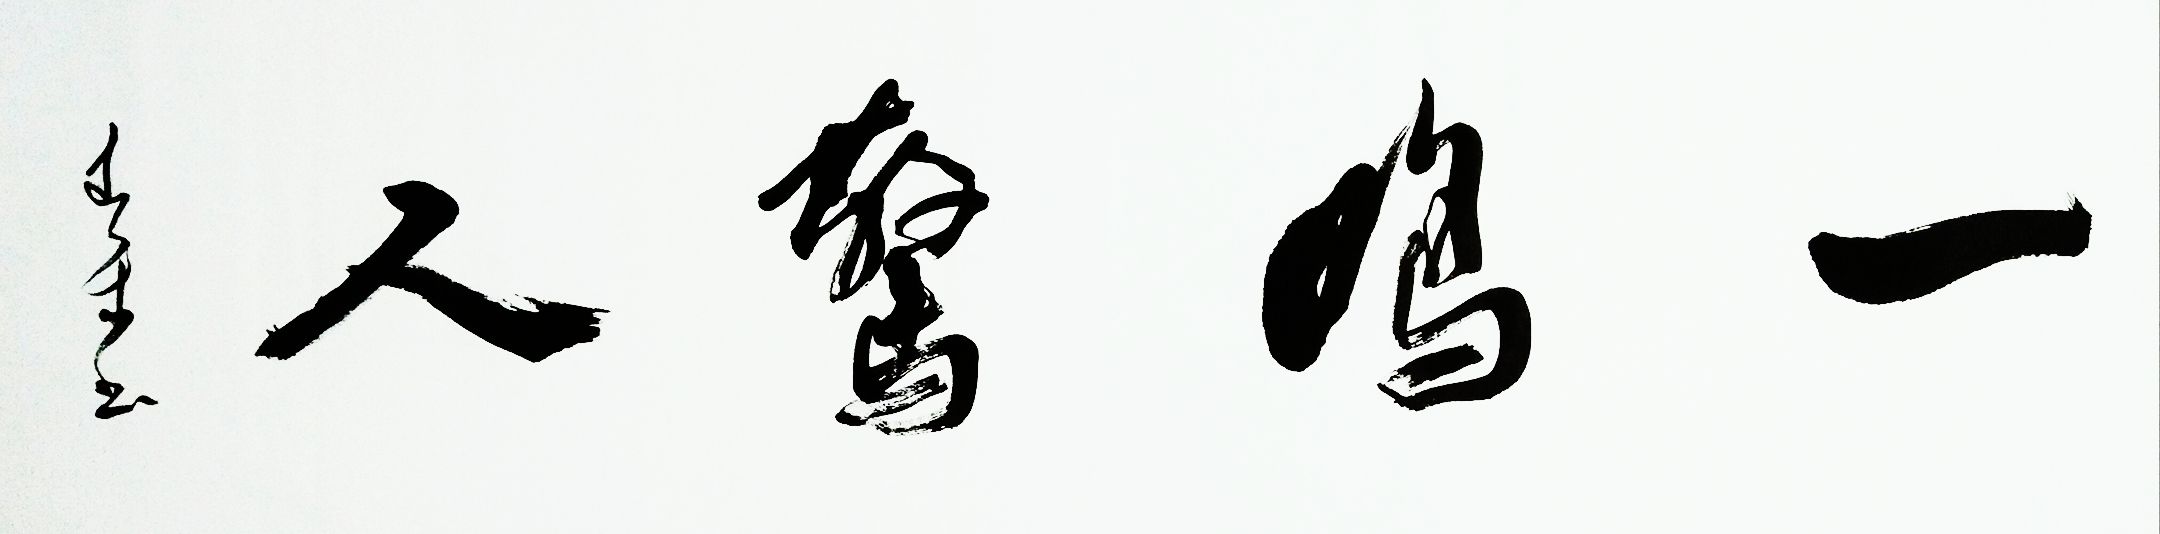 一鳴驚人